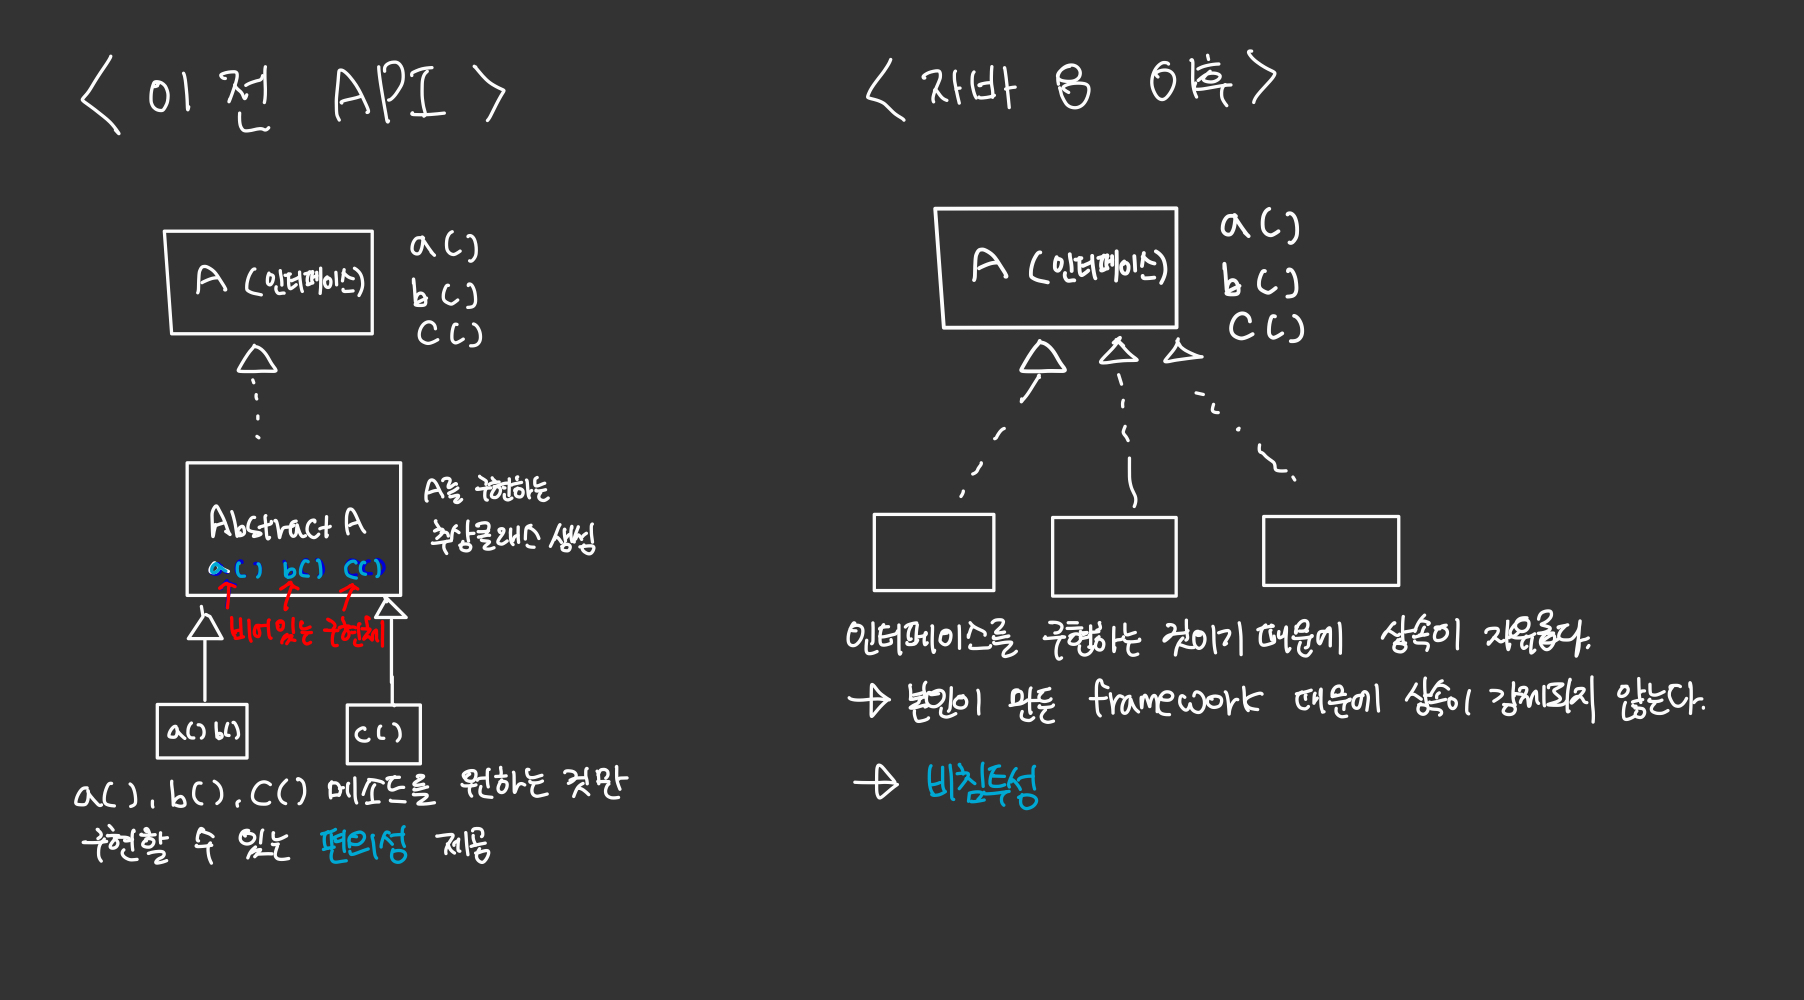 <이전 API>
A (인터페이스)
a()
b()
c()
Abstract A
a() b() c()
A를 구현하는
추상클래스 생성
비어있는 구현체
a() b()
c()
a(), b(), c() 메소드를 원하는 것만
구현할 수 있는 편의성 제공
<자바 8 이후>
A (인터페이스)
a()
b()
c()
인터페이스를 구현하는 것이기 때문에 상속이 자유롭다.
→ 본인이 만든 framework 때문에 상속이 강제되지 않는다.
→ 비침투성